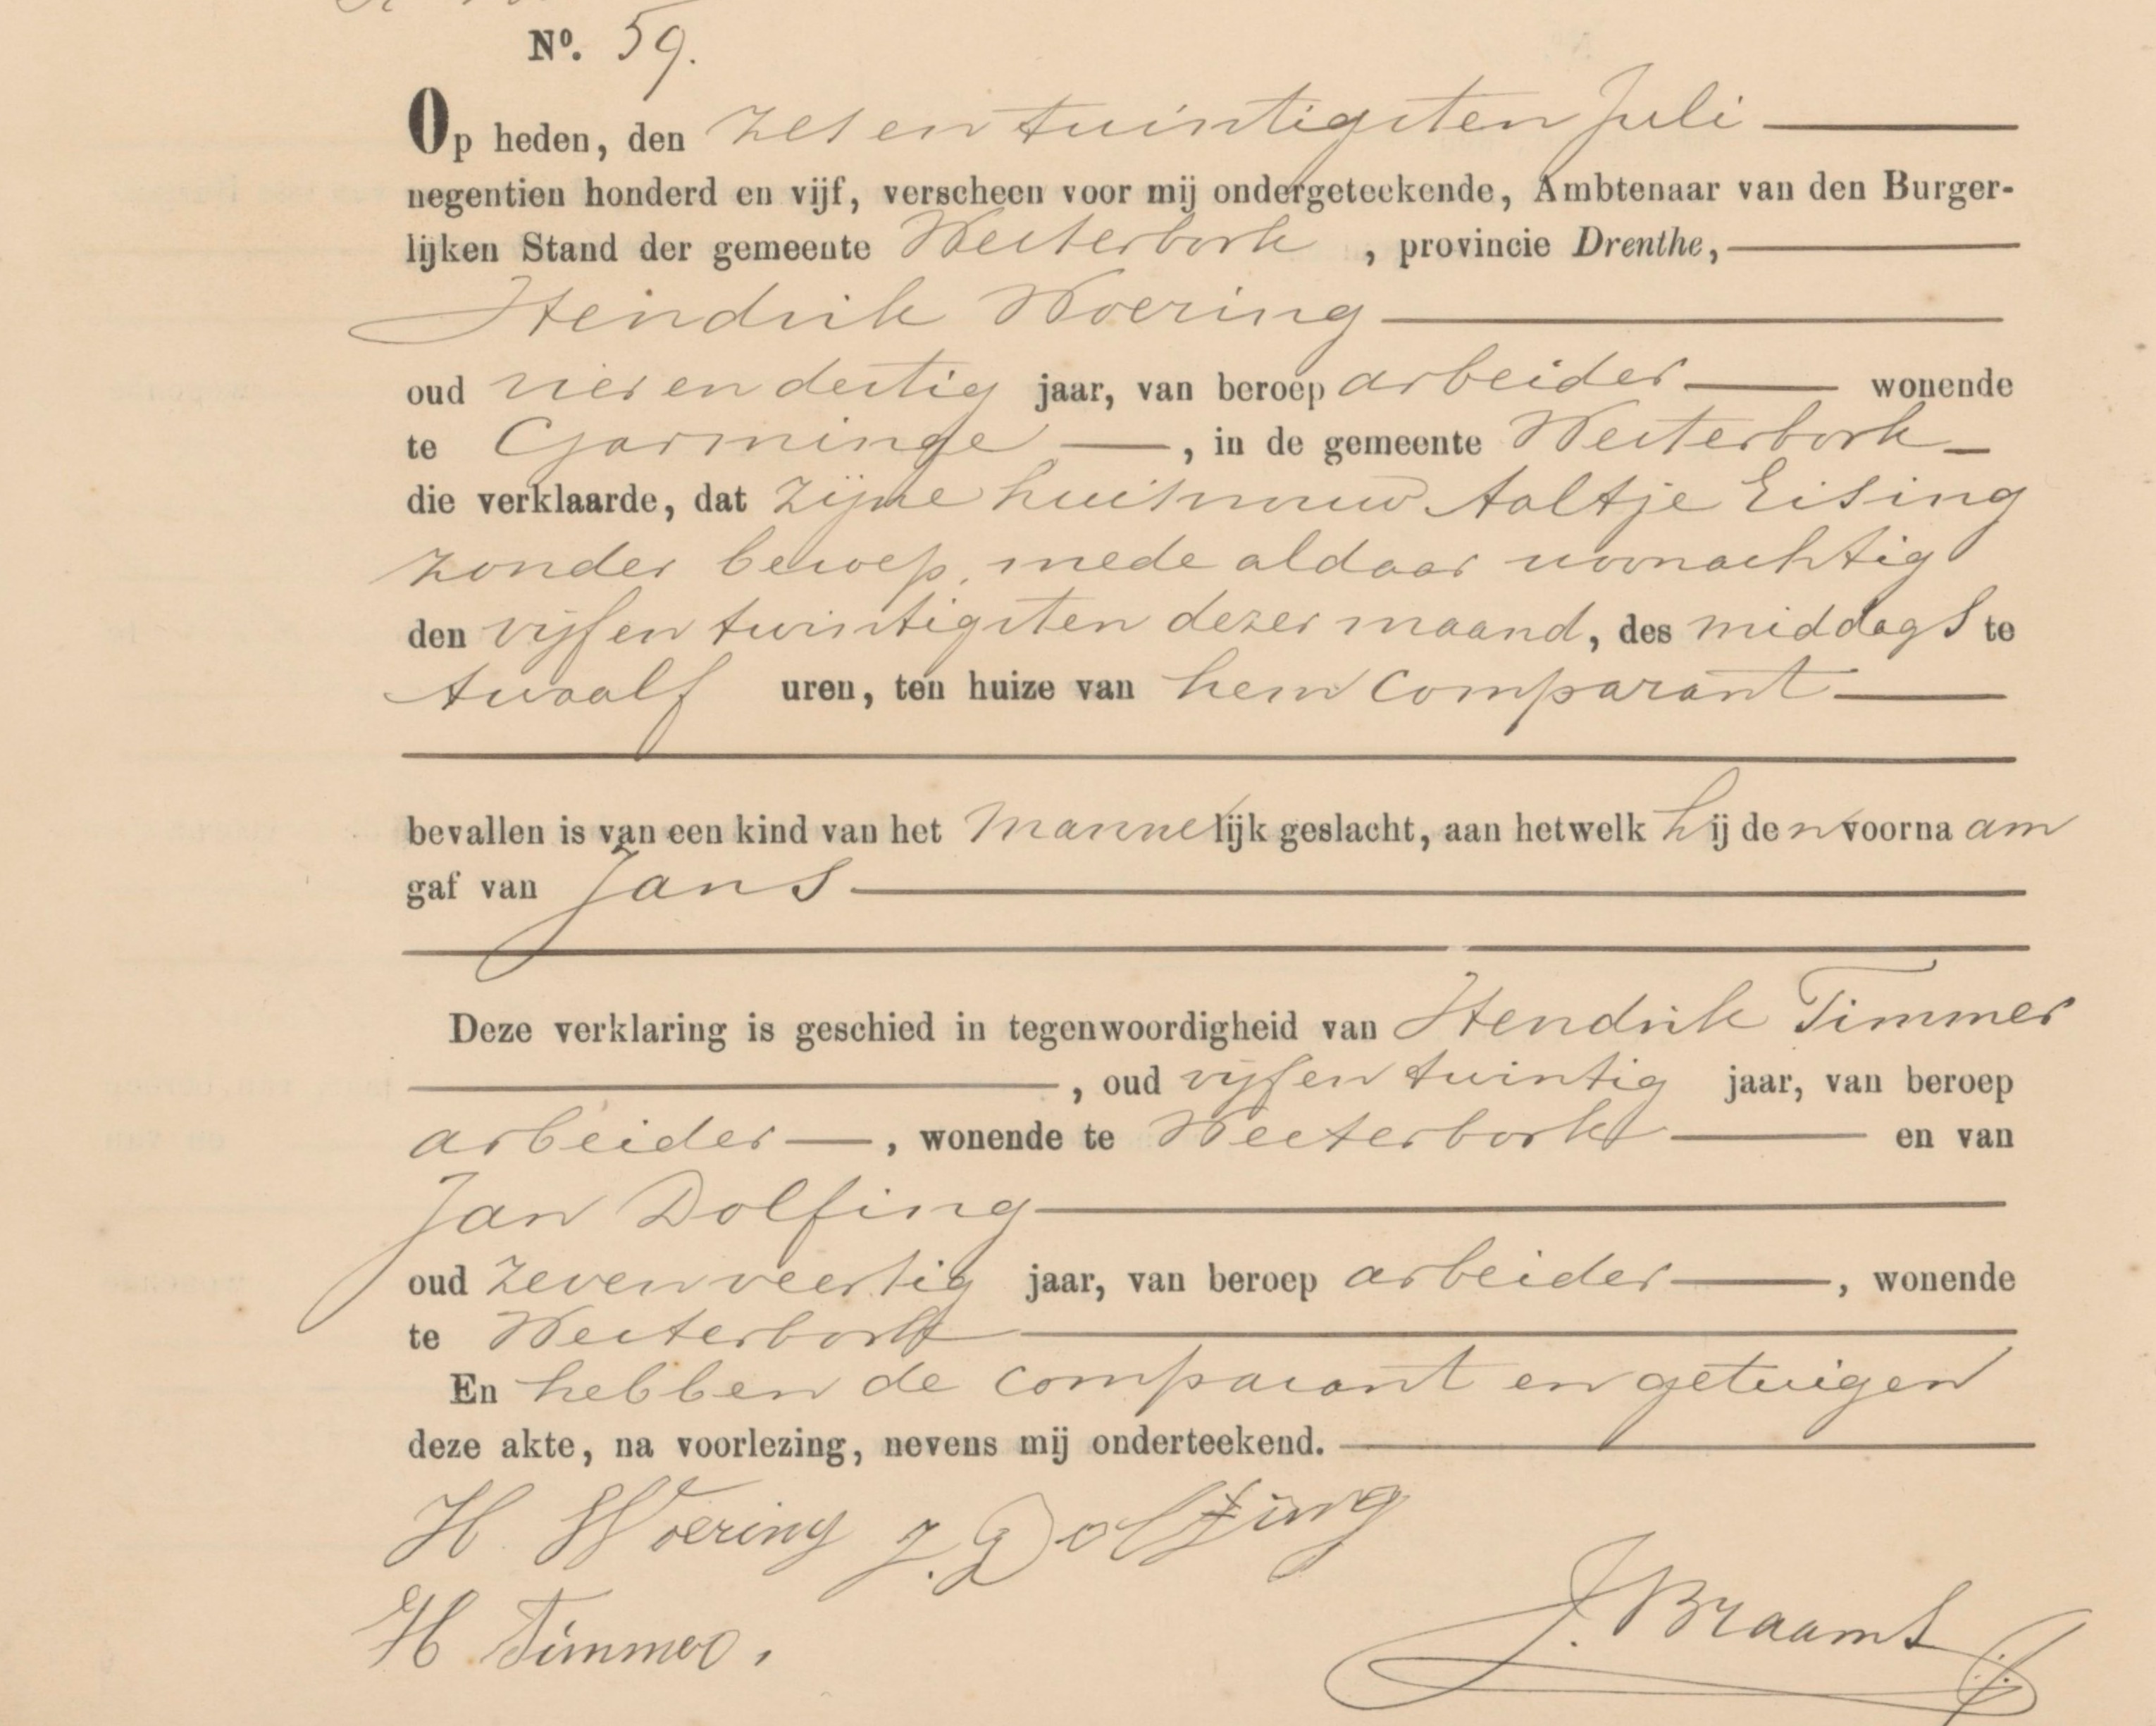 Nº. 59.
Op heden, den zes en tuintigsten Juli
negentien honderd en vijf, verscheen voor mij ondergeteekende, Ambtenaar van den Burger-
lijken Stand der gemeente Westerbork, provincie Drenthe,
Hendrik Woering
oud vier en dertig jaar, van beroep arbeider wonende
te Garminge, in de gemeente Westerbork
die verklaarde, dat zijne huisvrouw Aaltje Eising
zonder beroep, mede aldaar woonachtig
den vijf en twintigsten dezer maand, des middags te
twaalf uren, ten huize van hem comparant
bevallen is van een kind van het mannelijk geslacht, aan hetwelk hij den voornaam
gaf van Jans
Deze verklaring is geschied in tegenwoordigheid van Hendrik Timmer
, oud vijf en twintig jaar, van beroep
arbeider, wonende te Westerbork en van
Jan Dolfing
oud zeven veertig jaar, van beroep arbeider, wonende
te Westerbork
En hebben de comparant en getuigen
deze akte, na voorlezing, nevens mij onderteekend.
H Woering J. Dolfing
H Timmer.
J. Braams